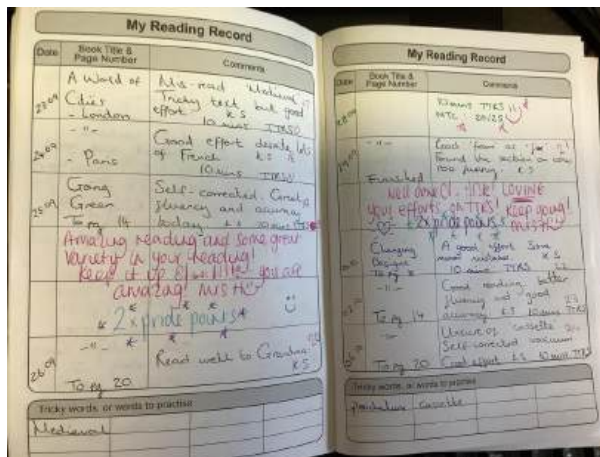 My Reading Record
Date
Book Title & Page Number
Comments
23.09
A World of Cities - London
Mis-read 'Medieval'.
Tricky text, but good
effort. KS
10 mins TTRS
24.09
-"- - Paris
Good effort despite lots
of French. KS
10 mins TTRS
25.09
Going Green
To pg 14
Self-corrected. Great
fluency and accuracy
today. KS
Amazing reading and some great
variety in your reading!
Keep it up you are
amazing! Mrs H
2x pride points
26.09
-"-
To pg 20
Read well to Grandma.
KS
Tricky words, or words to practise
Medieval
My Reading Record
Date
Book Title & Page Number
Comments
10 mins TTRS
MTC: 25/25
-"-
Finished
Found the section on
KS
Well done! LOVING
your efforts on TTRS! Keep going!
2x pride points Mrs H
Changing
Designs
A good effort. Some
KS
10 mins TTRS
-"-
To pg 14
Good reading, better
fluency and good
accuracy. KS 10 mins TTRS
-"-
To pg 20
Unsure of cassette
Self-corrected vacuum
Good effort KS 10 mins TTRS
Tricky words, or words to practise
Cassette